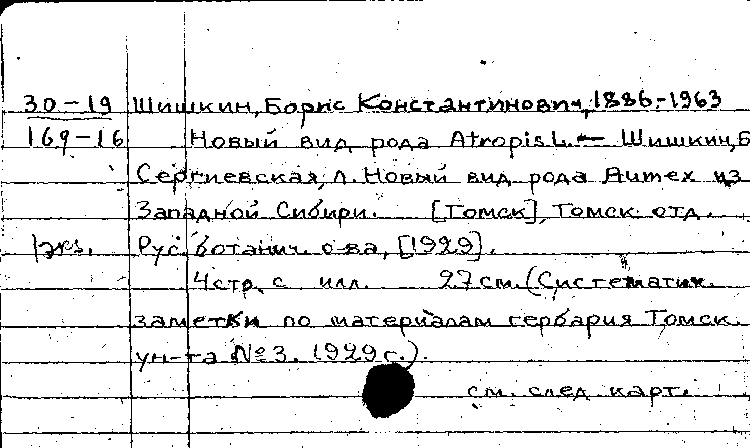 30-19 Шишкин, Борис Константинович, 1886-1963
169-16 Новый вид рода Atropis L. — Шишкин, Б
Сергиевская, Л. Новый вид рода Rumex из
Западной Сибири. [Томск], Томск. отд.
1экз. Рус. ботанич. о-ва, [1929].
4 стр. с илл. 27 см. (Систематич.
заметки по материалам гербария Томск.
ун-та №3. 1929 г.).
см. след карт.